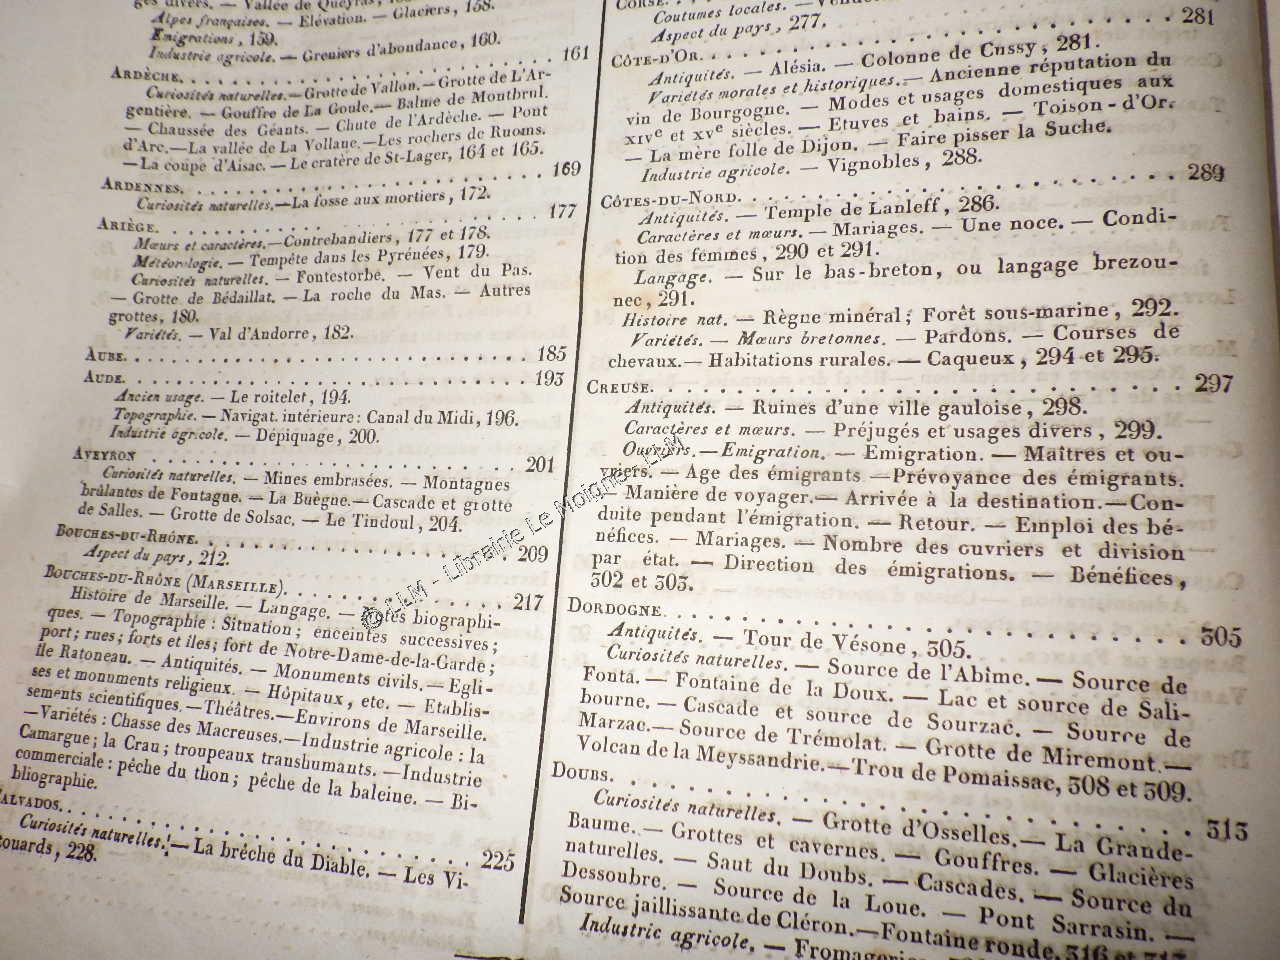 ges divers. — Vallée de Queyras, 158.
Alpes françaises. — Elévation. — Glaciers, 158.
Emigrations, 159.
Industrie agricole. — Greniers d'abondance, 160.
ARDÈCHE. 161
Curiosités naturelles.—Grotte de Vallon.—Grotte de L'Ar-
gentière. — Gouffre de La Goule.— Balme de Montbrul.
— Chaussée des Géants. — Chute de l'Ardèche. — Pont
d'Arc.—La vallée de La Vollane.—Les rochers de Ruoms.
—La coupe d'Aisac. — Le cratère de St-Lager, 164 et 165.
ARDENNES. 169
Curiosités naturelles.—La fosse aux mortiers, 172.
ARIÈGE. 177
Mœurs et caractères.—Contrebandiers, 177 et 178.
Météorologie. — Tempête dans les Pyrénées, 179.
Curiosités naturelles. — Fontestorbe. — Vent du Pas.
— Grotte de Bédaillat. — La roche du Mas. — Autres
grottes, 180.
Variétés. — Val d'Andorre, 182.
AUBE. 185
AUDE. 193
Ancien usage. — Le roitelet, 194.
Topographie. — Navigat. intérieure: Canal du Midi, 196.
Industrie agricole. — Dépiquage, 200.
AVEYRON 201
Curiosités naturelles. — Mines embrasées. — Montagnes
brûlantes de Fontagne. — La Buègne.— Cascade et grotte
de Salles. — Grotte de Solsac. — Le Tindoul, 204.
BOUCHES-DU-RHÔNE. 209
Aspect du pays, 212.
BOUCHES-DU-RHÔNE (MARSEILLE). 217
Histoire de Marseille. — Langage. — Notes biographi-
ques. — Topographie: Situation; enceintes successives;
port; rues; forts et îles; fort de Notre-Dame-de-la-Garde;
île Ratoneau. — Antiquités. — Monuments civils. — Egli-
ses et monuments religieux. — Hôpitaux, etc. — Etablis-
sements scientifiques.—Théâtres.—Environs de Marseille.
—Variétés: Chasse des Macreuses.—Industrie agricole: la
Camargue; la Crau; troupeaux transhumants. — Industrie
commerciale: pêche du thon; pêche de la baleine. — Bi-
bliographie.
ALVADOS. 225
Curiosités naturelles.—La brêche du Diable. — Les Vi-
ouards, 228.
CORSE.
Coutumes locales.
Aspect du pays, 277.
CÔTE-D'OR. 281
Antiquités. — Alésia. — Colonne de Cussy, 281.
Variétés morales et historiques.— Ancienne réputation du
vin de Bourgogne. — Modes et usages domestiques aux
XIVe et XVe siècles. — Etuves et bains. — Toison-d'Or.
— La mère folle de Dijon. — Faire pisser la Suche.
Industrie agricole. — Vignobles, 288.
CÔTES-DU-NORD. 289
Antiquités. — Temple de Lanleff, 286.
Caractères et mœurs. — Mariages. — Une noce. — Condi-
tion des femmes, 290 et 291.
Langage. — Sur le bas-breton, ou langage brezou-
nec, 291.
Histoire nat. — Règne minéral; Forêt sous-marine, 292.
Variétés. — Mœurs bretonnes. — Pardons. — Courses de
chevaux.— Habitations rurales. — Caqueux, 294 et 295.
CREUSE. 297
Antiquités. — Ruines d'une ville gauloise, 298.
Caractères et mœurs. — Préjugés et usages divers, 299.
Ouvriers.—Emigration. — Emigration. — Maîtres et ou-
vriers. — Age des émigrants —Prévoyance des émigrants.
— Manière de voyager.— Arrivée à la destination.—Con-
duite pendant l'émigration. — Retour. — Emploi des bé-
néfices. — Mariages. — Nombre des ouvriers et division
par état. — Direction des émigrations. — Bénéfices,
302 et 303.
DORDOGNE. 305
Antiquités. — Tour de Vésone, 305.
Curiosités naturelles. — Source de l'Abîme. — Source de
Fonta.— Fontaine de la Doux. — Lac et source de Sali-
bourne. — Cascade et source de Sourzac. — Source de
Marzac.— Source de Trémolat. — Grotte de Miremont.—
Volcan de la Meyssandrie.—Trou de Pomaissac, 308 et 309.
DOUBS. 313
Curiosités naturelles. — Grotte d'Osselles.— La Grande-
Baume.— Grottes et cavernes. — Gouffres. — Glacières
naturelles. — Saut du Doubs. — Cascades. — Source du
Dessoubre. — Source de la Loue. — Pont Sarrasin. —
Source jaillissante de Cléron.—Fontaine ronde, 316 et 317.
Industrie agricole. — Fromageries
© LLM - Librairie Le Moigne - LLM